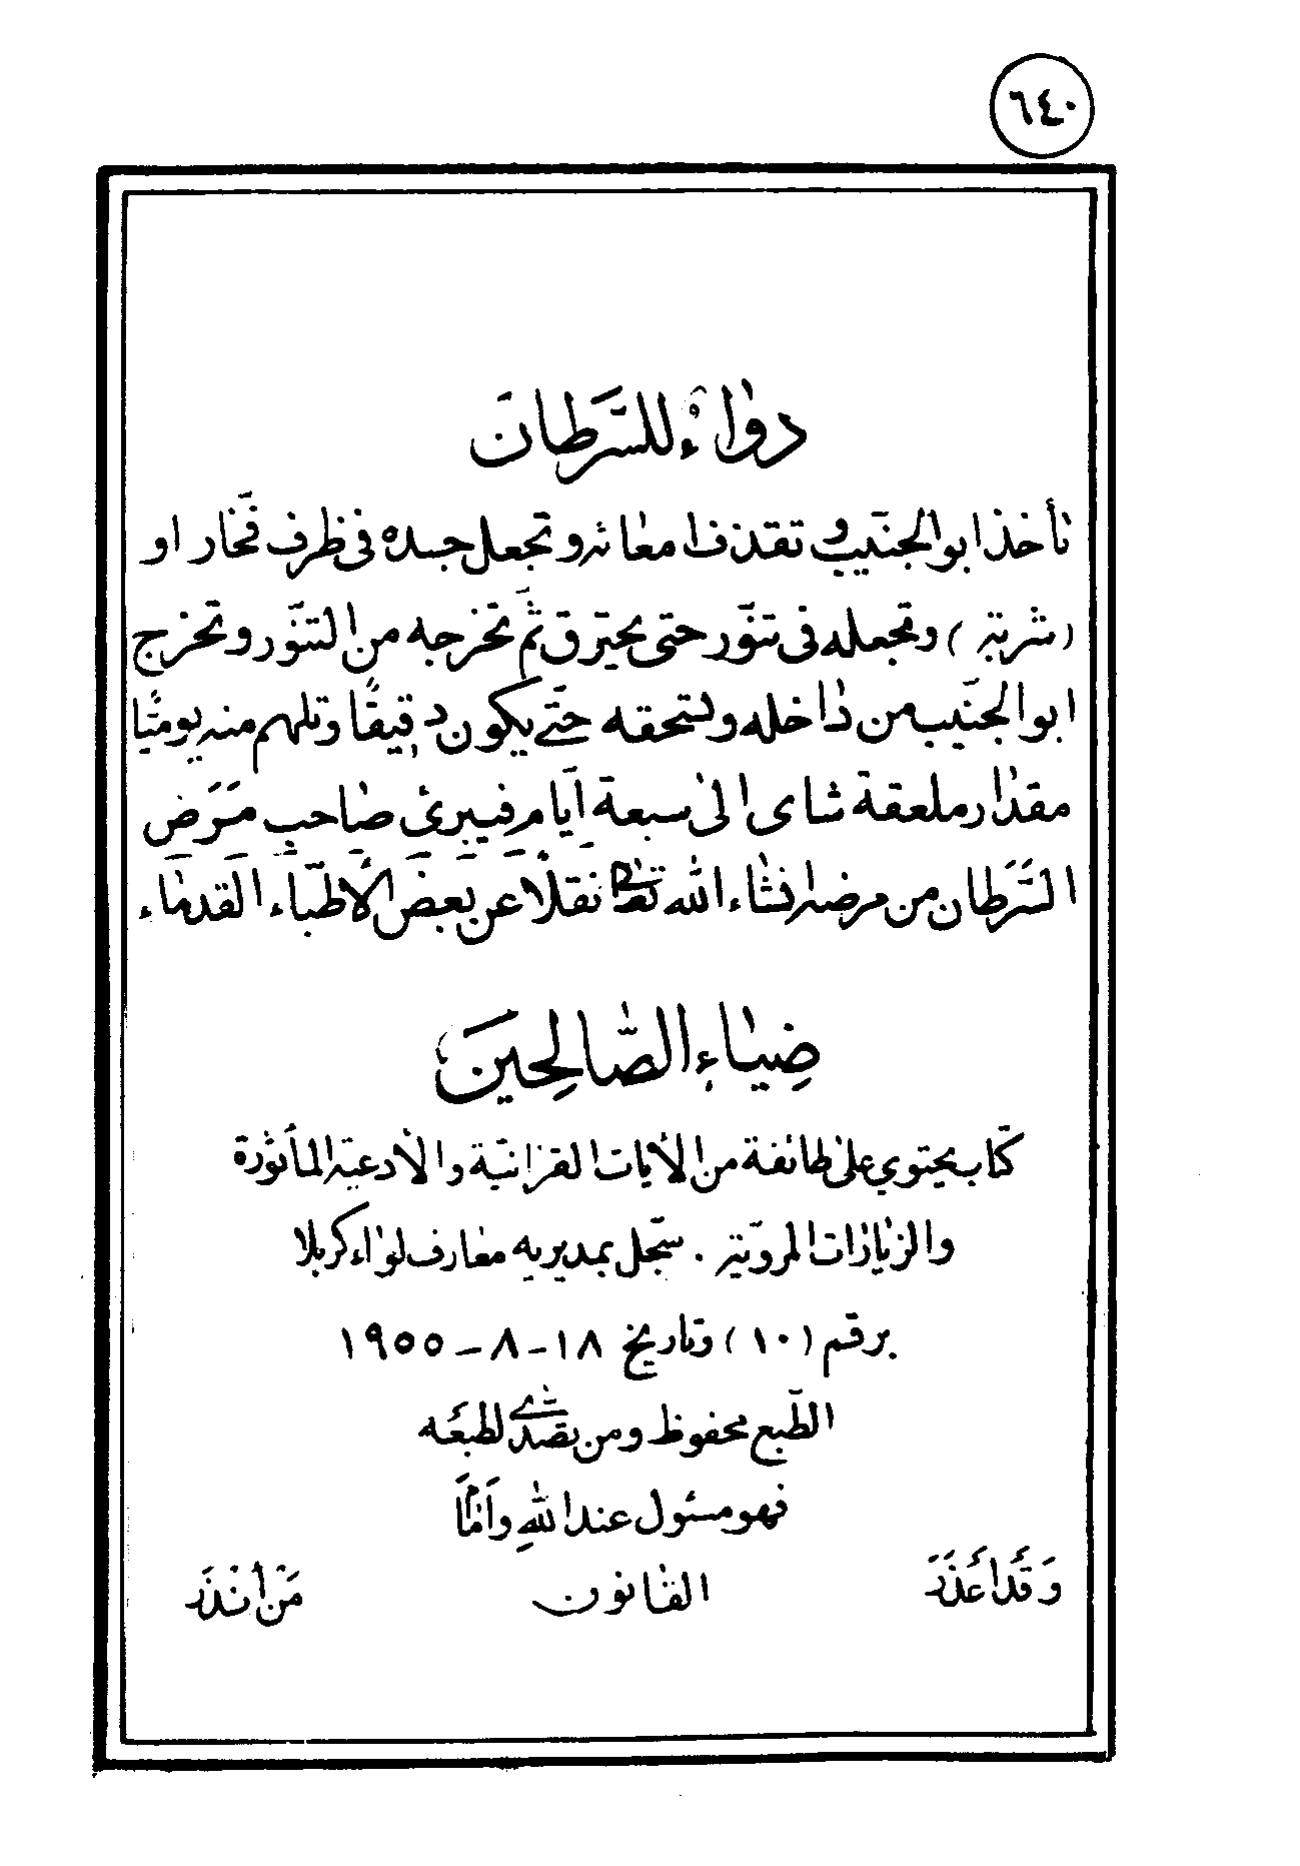 ٦٤٠
دواء للسرطان
تأخذ ابو الجنيب و تقذف امعائه و تجعل جسده فى ظرف فخار او
(شربة) و تجعله فى تنور حتى يحترق ثم تخرجه من التنور و تخرج
ابو الجنيب من داخله و تسحقه حتى يكون دقيقًا و تلهم منه يوميًا
مقدار ملعقة شاى الى سبعة أيام فيبرئ صاحب مَرَض
السَّرَطان من مرضه انشاء الله تعالى نقلًا عن بَعضَ الأطبّاء القدماء
ضِيٰاءِ الصّٰالِحينَ
كتاب يحتوي على طائفة من الأيات القرانيّة والأدعية المأثورة
والزيارات المرويّة . سجّل بمديريه معارف لواء كربلا
برقم (١٠) وتاريخ ١٨-٨-١٩٥٥
الطّبع محفوظ ومن تصدّى لطبعَه
فهو مسئول عند اللّٰهِ وأمّا
وَقَدأَعذَرَ القانون مَنْ أنْذَرَ